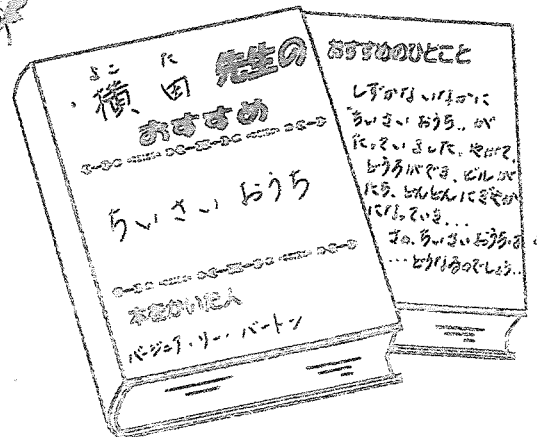 よこ た
横田 先生の
おすすめ
ちいさい おうち
本をかいた人
バージニア・リー・バートン
おすすめのひとこと
しずかな いなかに
"ちいさい おうち„ が
たっていました。やがて、
どうろができ、ビルが
たち、どんどんにぎやか
になっていき...
さぁ、ちいさいおうちは、
...どうなるのでしょう..